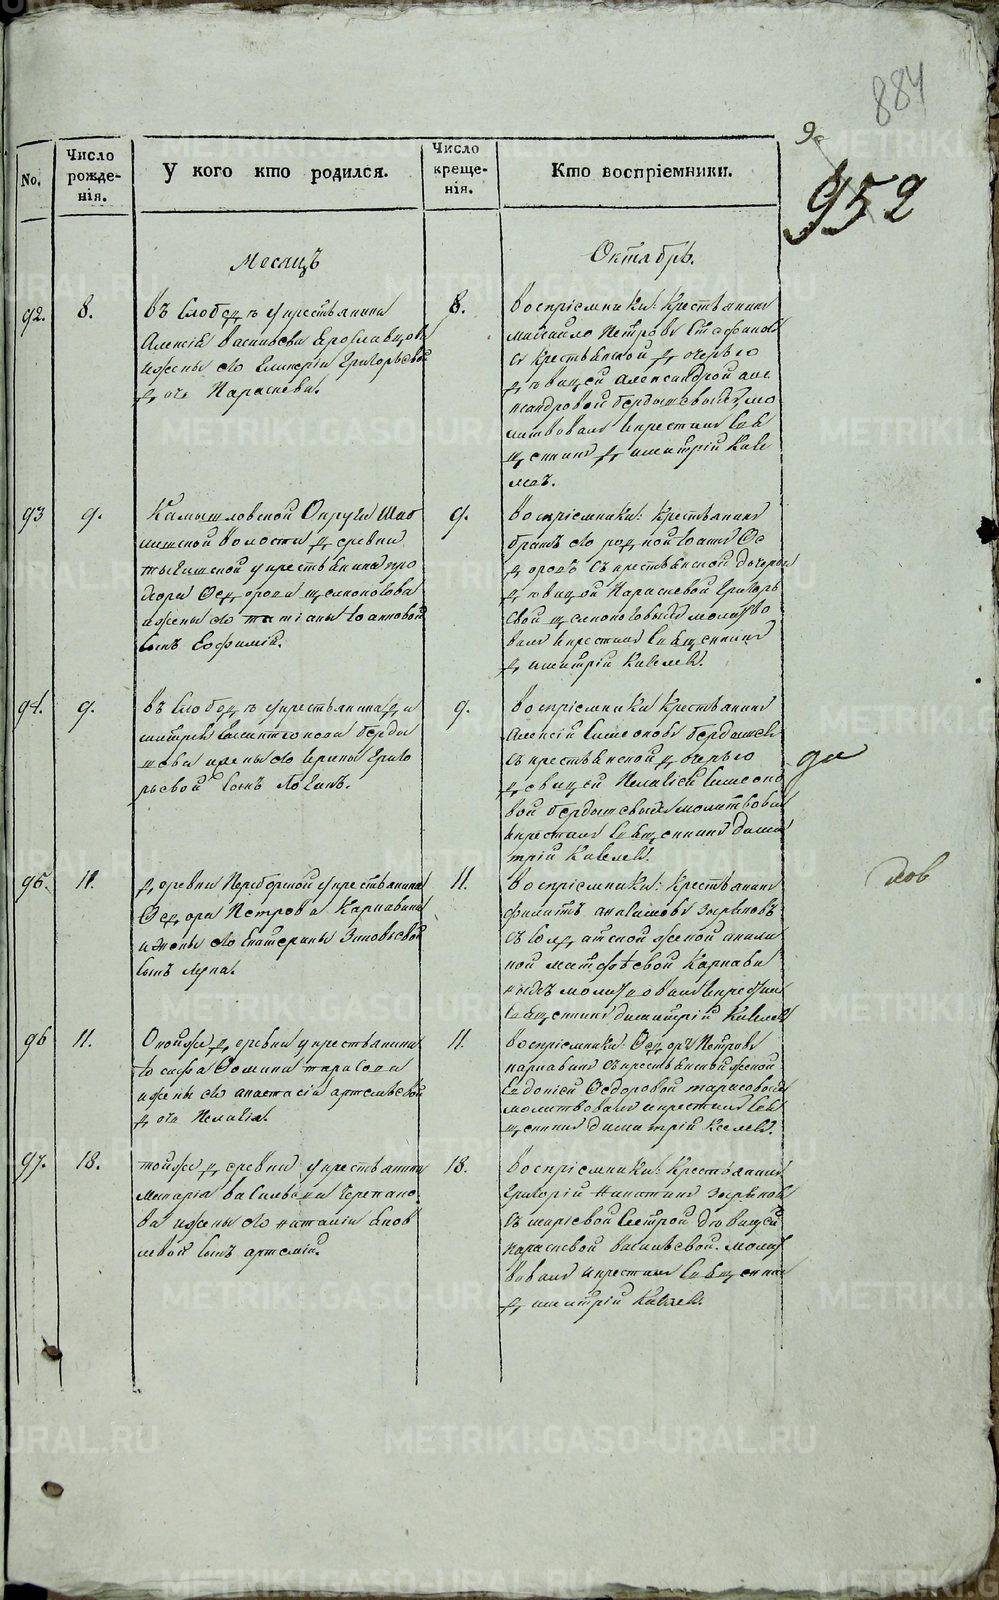 884
952
No.
Число рожденія.
У кого кто родился.
Число крещенія.
Кто воспріемники.
Месяцъ
Октябрь.
92.
8.
въ слободѣ у крестьянина
Алексія Васильева Ярославцова
и жены его Гликеріи Григорьевой
дочь Параскева.
8.
Воспріемники: крестьянинъ
Михайло Петровъ
съ крестьянской дочерью
дѣвицей Александрой Алек
сандровой Бердышевыхъ, мо
литвовалъ и крестилъ свя
щенникъ Димитрій Киселе
въ.
93
9.
Камышловской Округи
волости деревни
у крестьянина
Ѳедорова
и жены его Татіаны Іоанновой
сынъ Евфимій.
9.
Воспріемники: крестьянинъ
братъ его родной Іоаннъ Ѳе
доровъ съ крестьянской дочерью
дѣвицей Параскевой Григорь
евой молитво
валъ и крестилъ священникъ
Димитрій Киселевъ.
94.
9.
въ слободѣ у крестьянина Ди
митрія Берды
шева и жены его Ирины Григо
рьевой сынъ Логинъ.
9.
Воспріемники крестьянинъ
Алексій Симеоновъ Бердышевъ
съ крестьянской дочерью
дѣвицей Пелагіей Симеоно
вой Бердышевыхъ молитвовалъ
и крестилъ священникъ Дими
трій Киселевъ.
95.
11.
деревни Переборной у крестьянина
Ѳедора Петрова Карнавина
и жены его Екатерины Зиновьевой
сынъ Лука.
11.
Воспріемники: крестьянинъ
Зыряновъ
съ солдатской женой Акили
ной Матфѣевой Карнави
ныхъ молитвовалъ и крестилъ
священникъ Димитрій Киселевъ
96
11.
Оной же деревни у крестьянина
Іосифа Ѳомина Тарасова
и жены его Анастасіи Артемьевой
дочь Пелагія.
11.
Воспріемники: Ѳедоръ Петровъ
Карнавинъ съ крестьянской женой
Евдокіей Ѳедоровой Тарасовыхъ
молитвовалъ и крестилъ свя
щенникъ Димитрій Киселевъ.
97.
18.
той же деревни у крестьянина
Макарія Васильева Черепано
ва и жены его Наталіи Яков
левой сынъ Артемій.
18.
Воспріемники: крестьянинъ
Григорій Никитинъ Зыряновъ
съ сестрой дѣвицей
Параскевой Васильевой. Молит
вовалъ и крестилъ священникъ
Димитрій Киселевъ.
METRIKI.GASO-URAL.RU